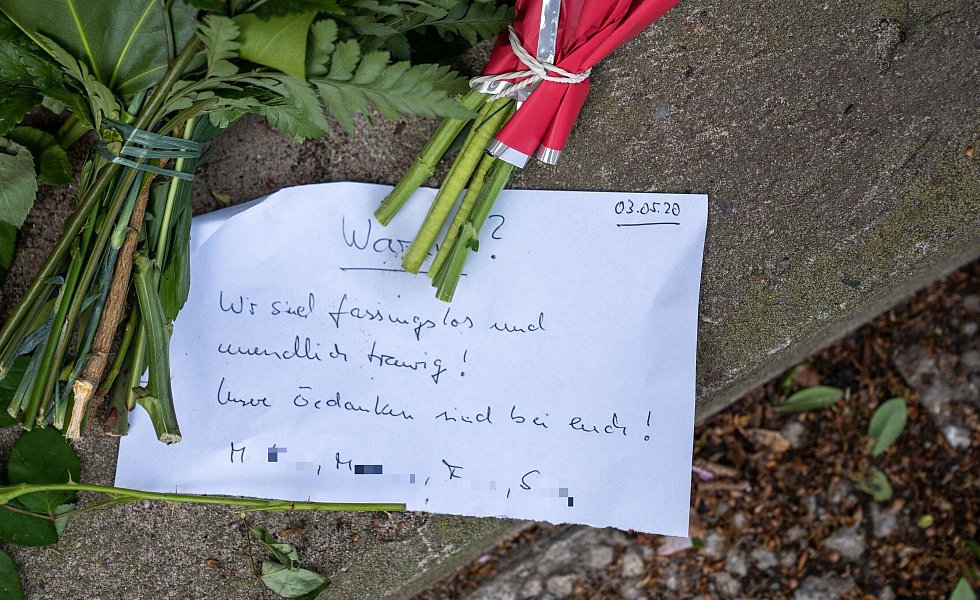 03.05.20
War ?
Wir sind fassungslos und
unendlich traurig!
Unsere Gedanken sind bei euch!
M , M , F , S